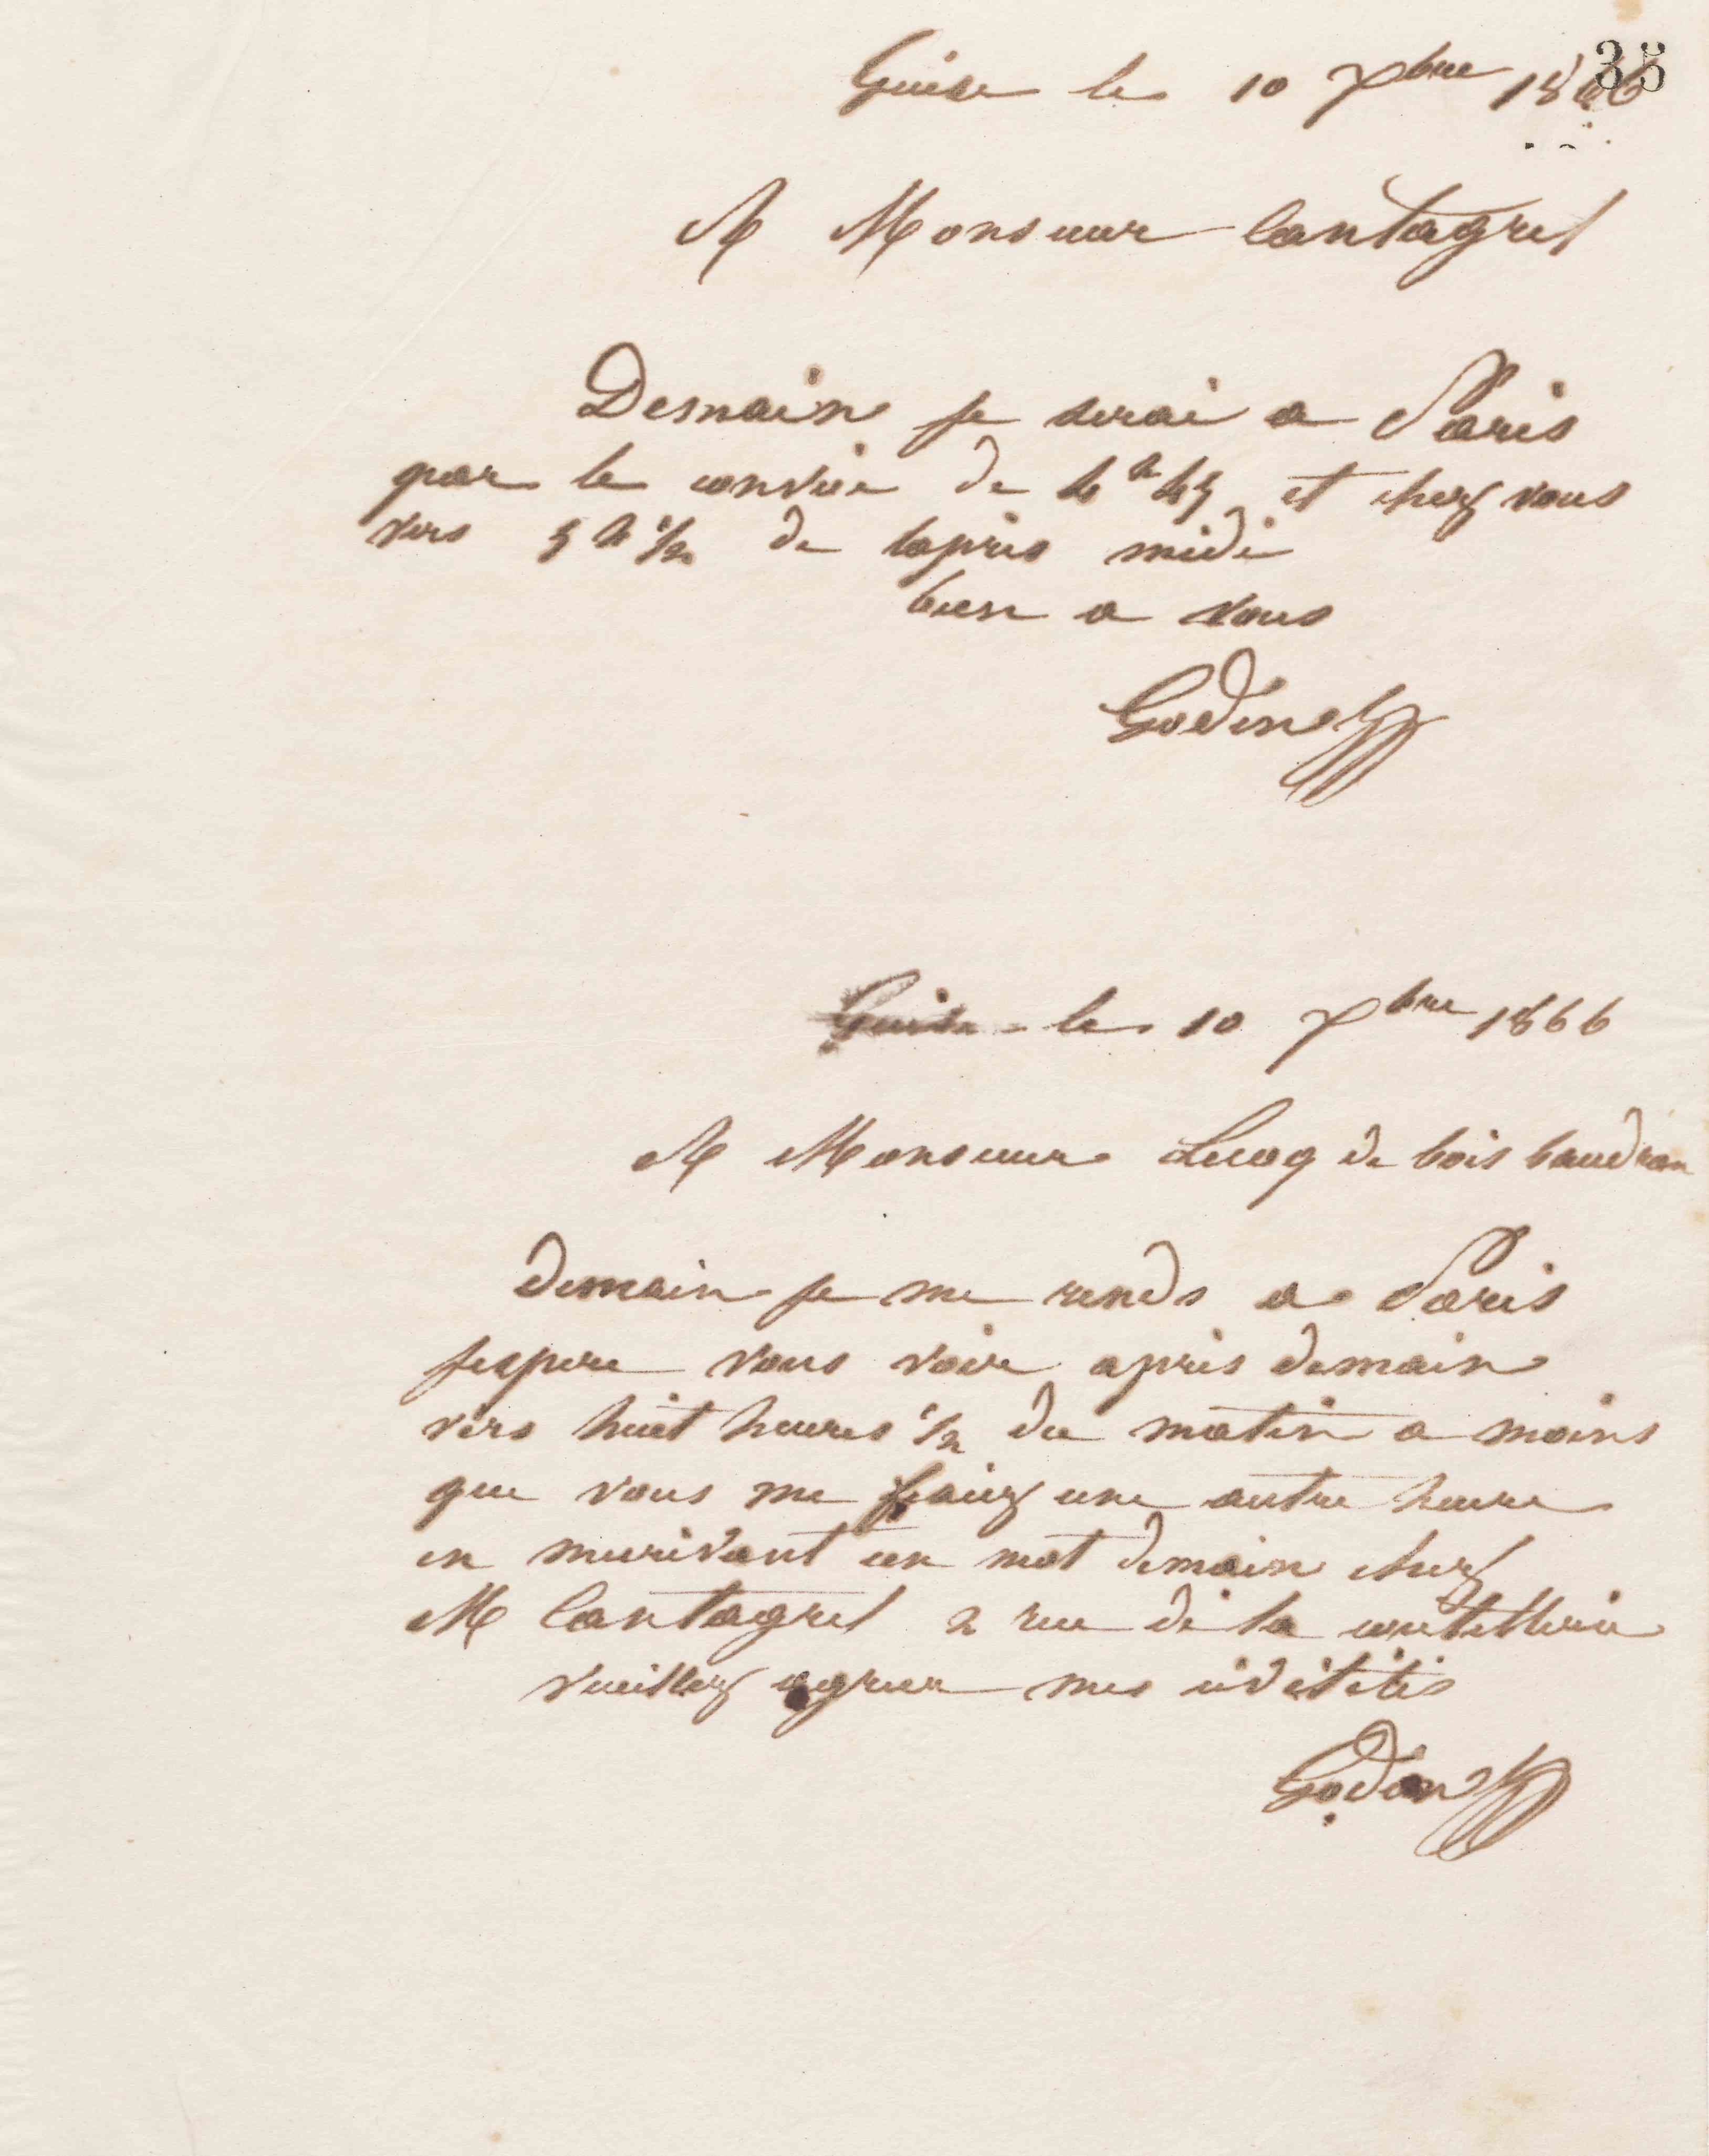 35
Guise le 10 Xbre 1866
A Monsieur Cantagrel
Demain je serai a Paris
par le convoi de 4h 45 et chez vous
vers 5 h 1/2 de lapres midi
bien a vous
Godin
Guise le 10 Xbre 1866
A Monsieur Lecoq de bois baudran
demain je me rends a Paris
jespere vous voir après demain
vers huit heures 1/2 du matin a moins
que vous me une autre heure
en mecrivant un mot demain chez
M Cantagrel 2 rue de la coutellerie
veuillez agreer mes civilités
Godin